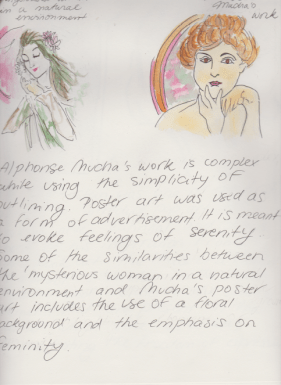 in a natural
environment
Mucha's
work
Alphonse Mucha's work is complex
while using the simplicity of
outlining. Poster art was used as
a form of advertisement It is meant
to evoke feelings of serenity.
Some of the similarities between
the 'mysterious woman in a natural
environment and Mucha's poster
art includes the use of a floral
background and the emphasis on
feminity.